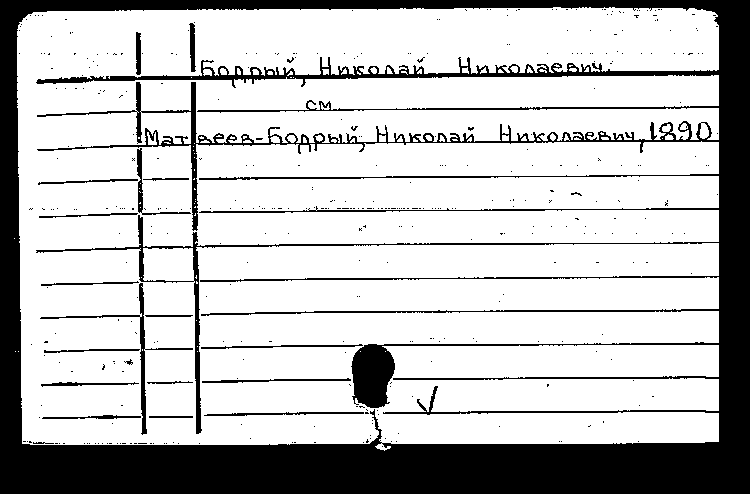 Бодрый, Николай Николаевич.
см.
Матвеев-Бодрый, Николай Николаевич, 1890